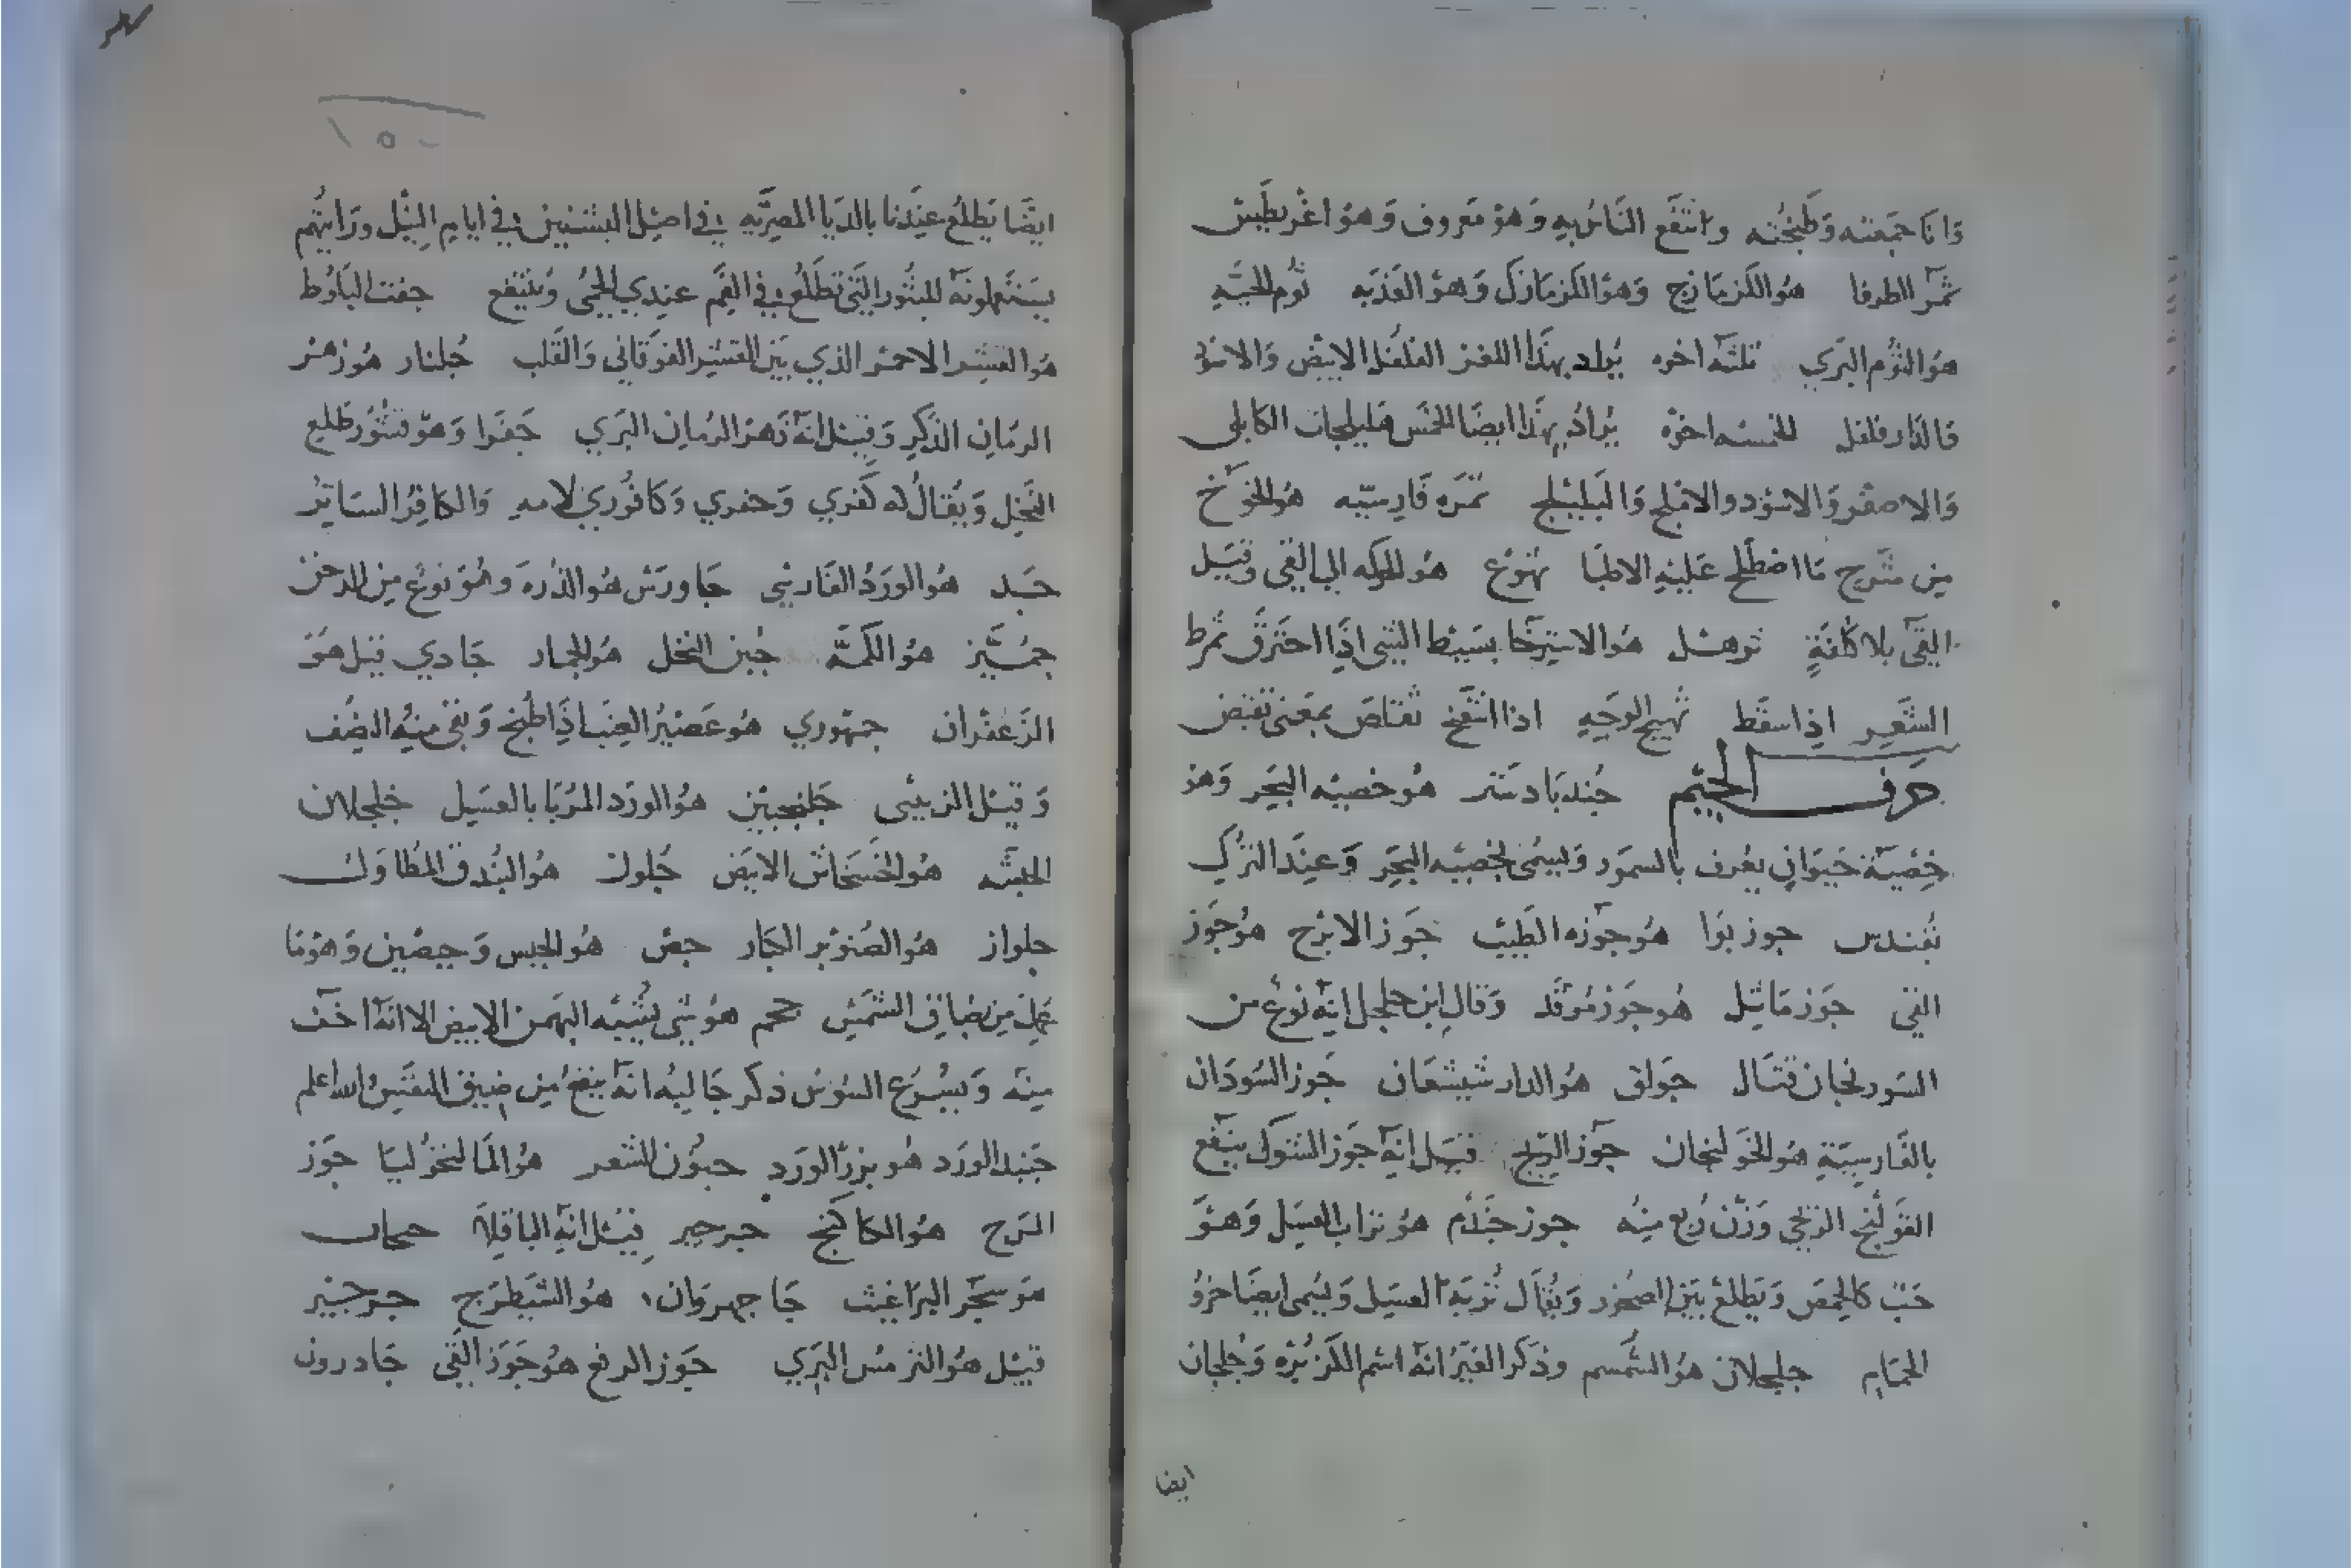 وانا جمعته وطبخته وانتفع الناس به وهو معروف وهو اغريطيس
ثمر الطرفا هو الكزمازج وهو الكزمازك وهو العذبه ثوم الحيه
هو الثوم البري ثلثه اخره يراد بهذا اللغز الفلفل الابيض والاسود
فالدار فلفل الخمسه اخره يراد بهذا ايضا الخمس هليلجات الكابلي
والاصفر والاسود والاملج والبليلج تمره فارسيه هو الخوخ
من شرح ما اصطلح عليه الاطبا تهوع هو الحركه الي القي وقيل
القي بلا كلفة ترهل هو الاسترخا بسيط الشي اذا احترق تمرط
الشعر اذا سقط تهيج الوجه اذا انتفخ تقلص بمعنى تقبض
حرف الجيم جندبادستر هو خصيه البحر وهو
خصية حيوان يعرف بالسمور ويسمى بخصيه البحر وعند الترك
قندس جوز بوا هو جوزه الطيب جوز الابرح هو جوز
القي جوز ماثل هو جوز مرقد وقال ابن جلجل انه نوع من
السورنجان قتال جولق هو الدار شيشعان جوز السودان
بالفارسية هو الخولنجان جوز الريح قيل انه جوز الشوك ينفع
القولنج الريحي وزن ربع منه جوز جندم هو تراب العسل وهو
حب كالحمص ويطلع بين الصخور ويقال تربة العسل ويسمى ايضا خرو
الحمام جلجلان هو السمسم وذكر الغير انه اسم الكزبره وجلجان
ايضا
١٥٠
ايضا يطلع عندنا بالديا المصريه في اصل البشنين في ايام النيل ورايتهم
يستعملونه للبثور التي تطلع في الفم عندي الحمى وينتفع جفت البلوط
هو القشر الاحمر الذي بين القشر الفوقاني والقلب جلنار هو زهر
الرمان الذكر وقيل انه زهر الرمان البري جفرا وهو قشور طلع
النخل ويقال له كفري وجفري وكافوري لامه والكافر الساتر
جبد هو الورد الفارسي جاورش هو الذره وهو نوع من الدخن
جميز هو الكمه جبن النخل هو الجمار جادي قيل هو
الزعفران جمهوري هو عصير العنب اذا طبخ وبقي منه النصف
وقيل الزبيبي جلنجبين هو الورد المربا بالعسل جلجلان
الحبشه هو الخشخاش الابيض جلوز هو البندق المطاول
جلواز هو الصنوبر الكبار جص هو الجبس وجبصين وهو ما
عمل من طباق الشمس جحم هو شي يشبه البهمن الابيض الا انه اخف
منه ويسرع السوس ذكر جاليه انه ينفع من ضيق النفس والله اعلم
جنبد الورد هو بزر الورد جنون الشعر هو المالنخوليا جوز
المرج هو الكاكنج جرجير قيل انه الباقلا
هو شجر البراغيث جاجهروان هو الشيطرج جرجير
قيل هو الترمس البري جوز الرفع هو جوز القي جادرون